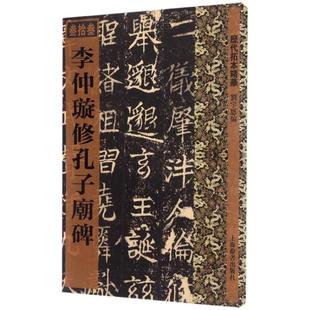 叁拾叁
李仲璇修孔子廟碑
歷代拓本精華
二儀肇泮人倫
舉邈邈玄王誕茲
聖猪習堯
上海辭書出版社